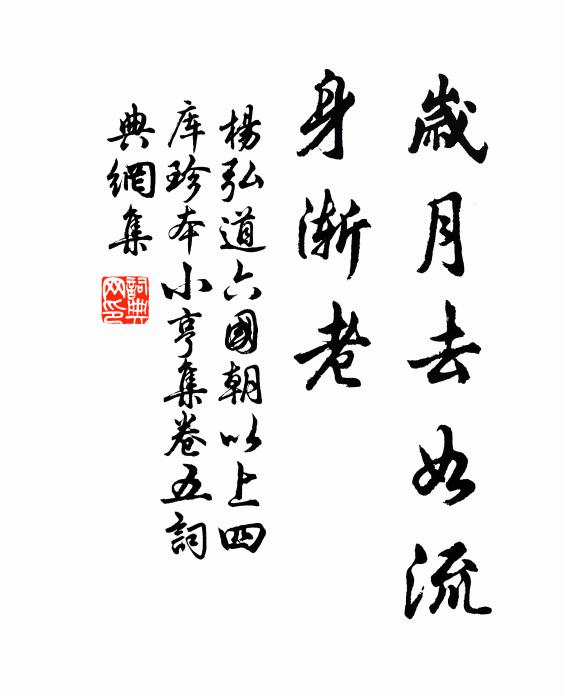 歲月去如流
身漸老
楊弘道六國朝以上四
库珍本小亨集卷五詞
典網集
詞典
网印